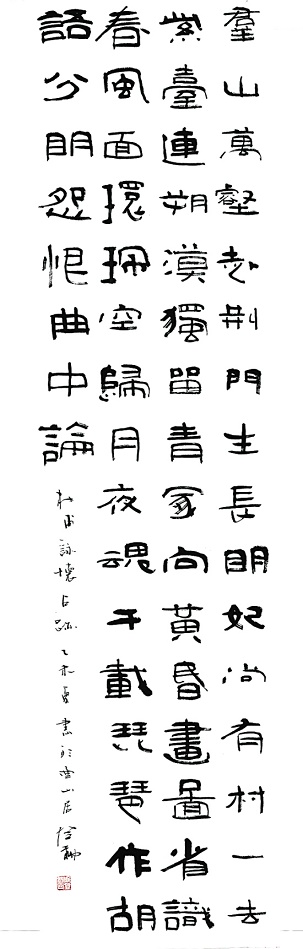 羣山萬壑赴荆門生長明妃尚有村一去
紫臺連朔漠獨留青冢向黃昏畫圖省識
春風面環珮空歸月夜魂千載琵琶作胡
語分明怨恨曲中論
杜甫詠懷古跡乙未夏書於山居